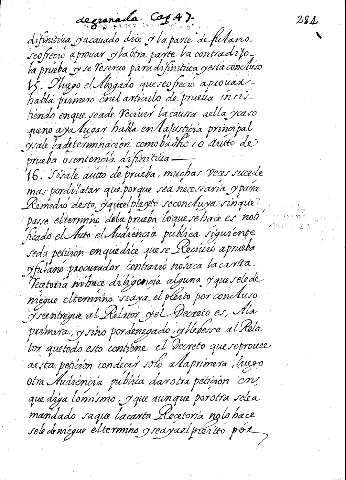 de granada. Cap. 47. 284
difinitiua, y acauado dice y la parte de fulano.
se ofrecio a prouar, y la otra parte lo contradijo.
la prueba, y se reseruo para difinitiua, y esta concluso
15. Luego el Abogado que se ofrecio a prouar.
habla primero en el articulo de prueba insis-
tiendo en que se a de receuir la causa a ella, y caso
que no aya lugar habla en la justicia principal
y sale la determinacion como ba dho. o Autto de
prueba o sentencia difinitiua
16. Si sale autto de prueba, muchas veces sucede
mas por dilatar que porque sea necessaria, y para
Remedio desto, y que el pleyto se concluya sin que
passe el termino de la prueba lo que se hace es noti
ficado el Auto el Audiencia publica siguiente
se da peticion en que dice que se Receuio a prueba
y fulano procurador contrario no saca la carta
Recetoria ni hace diligencia alguna y que se le de
niegue el termino y se aya el pleito por concluso
y se entregue al Relator y el Decreto es, A la
primera, y sino por denegado, y llebesse al Rela
tor, que todo esto contiene el Decreto que se prouee
a esta peticion con decar solo A la primera, luego
otra Audiencia publica da otra peticion en
que diga lo mismo, y que aunque por otra se le a
mandado saque la carta Recetoria no lo hace
se le deniegue el termino y se aya el pleitto por